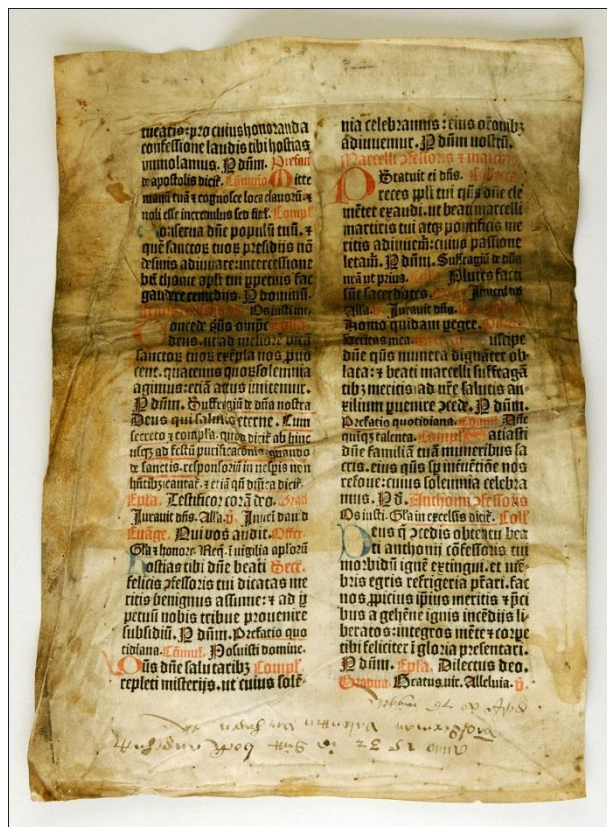 tueatis: pro cuius honoranda
confessione laudis tibi hostias
immolamus. P dñm. Prefati
de apostolis dicit̃. Cõmunio Mitte
manũ tuã ⁊ cognosce loca clauorũ ⁊
noli esse incredulus sed fidel. Compl
Conserua dñe populũ tuũ. ⁊
quẽ sanctoꝝ tuoꝝ presidijs nõ
desinis adiuuare: intercessione
bti thome apli tui ppetuis fac
gaudere remedijs. P dominũ.
Os iusti me.
Concede q̃s om̃ps
deus. ut ad meliorẽ vitã
sanctoꝝ tuoꝝ exẽpla nos puo
cent. quatenus quoꝝ solemnia
agimus: etiã actus imitemur.
P dñm. Suffragiũ de dña nostra
Deus qui salutis eterne. Cum
secreto ⁊ compla. quod dicit̃ ab hinc
usqꝫ ad festũ purificacõnis. quando
de sanctis. responsoriũ in vespis non
hũt
Epla. Testificor corã deo. Grad
Jurauit dñs. Alla. v̄. Inueni dauid
Euãge. Nui vos audit. Offer.
Gl̃a ⁊ honore. Req̃. ĩ uigilia aplorũ
Hostias tibi dñe beati Secr.
felicis ꝯfessoris tui dicatas me
ritis benignus assume: ⁊ ad p
petuũ nobis tribue prouenire
subsidiũ. P dñm. Prefatio quo
tidiana. Cõmuĩ. Posuisti domine.
Q̃s dñe salutaribꝫ Compl.
repleti misterijs. ut cuius solẽ-
nia celebramus: eius or̃onibꝫ
adiuuemur. P dñm nostrũ.
Marcelli ꝯfessoris ⁊ martiris
Statuit ei dñs. Collecta
Preces ppli tui q̃s dñe cle
mẽter exaudi. ut beati marcelli
martiris tui atqꝫ pontificis me
ritis adiuuem̃: cuius passione
letam̃. P dñm. Suffragiũ de dña
nrã ut prius. Plures facti
sũt sacerdotes.
Alla. v̄. Jurauit dñs.
Homo quidam pegre.
Veritas mea. Suscipe
dñe q̃s munera dignãter ob
lata: ⁊ beati marcelli suffragã
tibꝫ meritis: ad nr̃e salutis au-
xilium puenire ꝯcede. P dñm.
Prefatio quotidiana. Dñe
quinqꝫ talenta. Compl Satiasti
dñe familiã tuã muneribus sa
cris. eius q̃s sp inuẽtiõe nos
refoue: cuius solemnia celebra
mus. P d. Anthonij ꝯfessoris
Os iusti. Gl̃a in excelsis dicit̃. Coll
Deus q̃ ꝯcedis obtentu bea
ti anthonij cõfessoris tui
morbidũ ignẽ extingui. et mẽ-
bris egris refrigeria p̃tari. fac
nos ꝓpicius ip̃ius meritis ⁊ p̃ci
bus a gehẽne ignis incẽdijs li-
beratos: integros mẽte ⁊ corpe
tibi feliciter ĩ gloria presentari.
P dñm. Epla. Dilectus deo.
Gradua. Beatus uir. Alleluia. v̄.